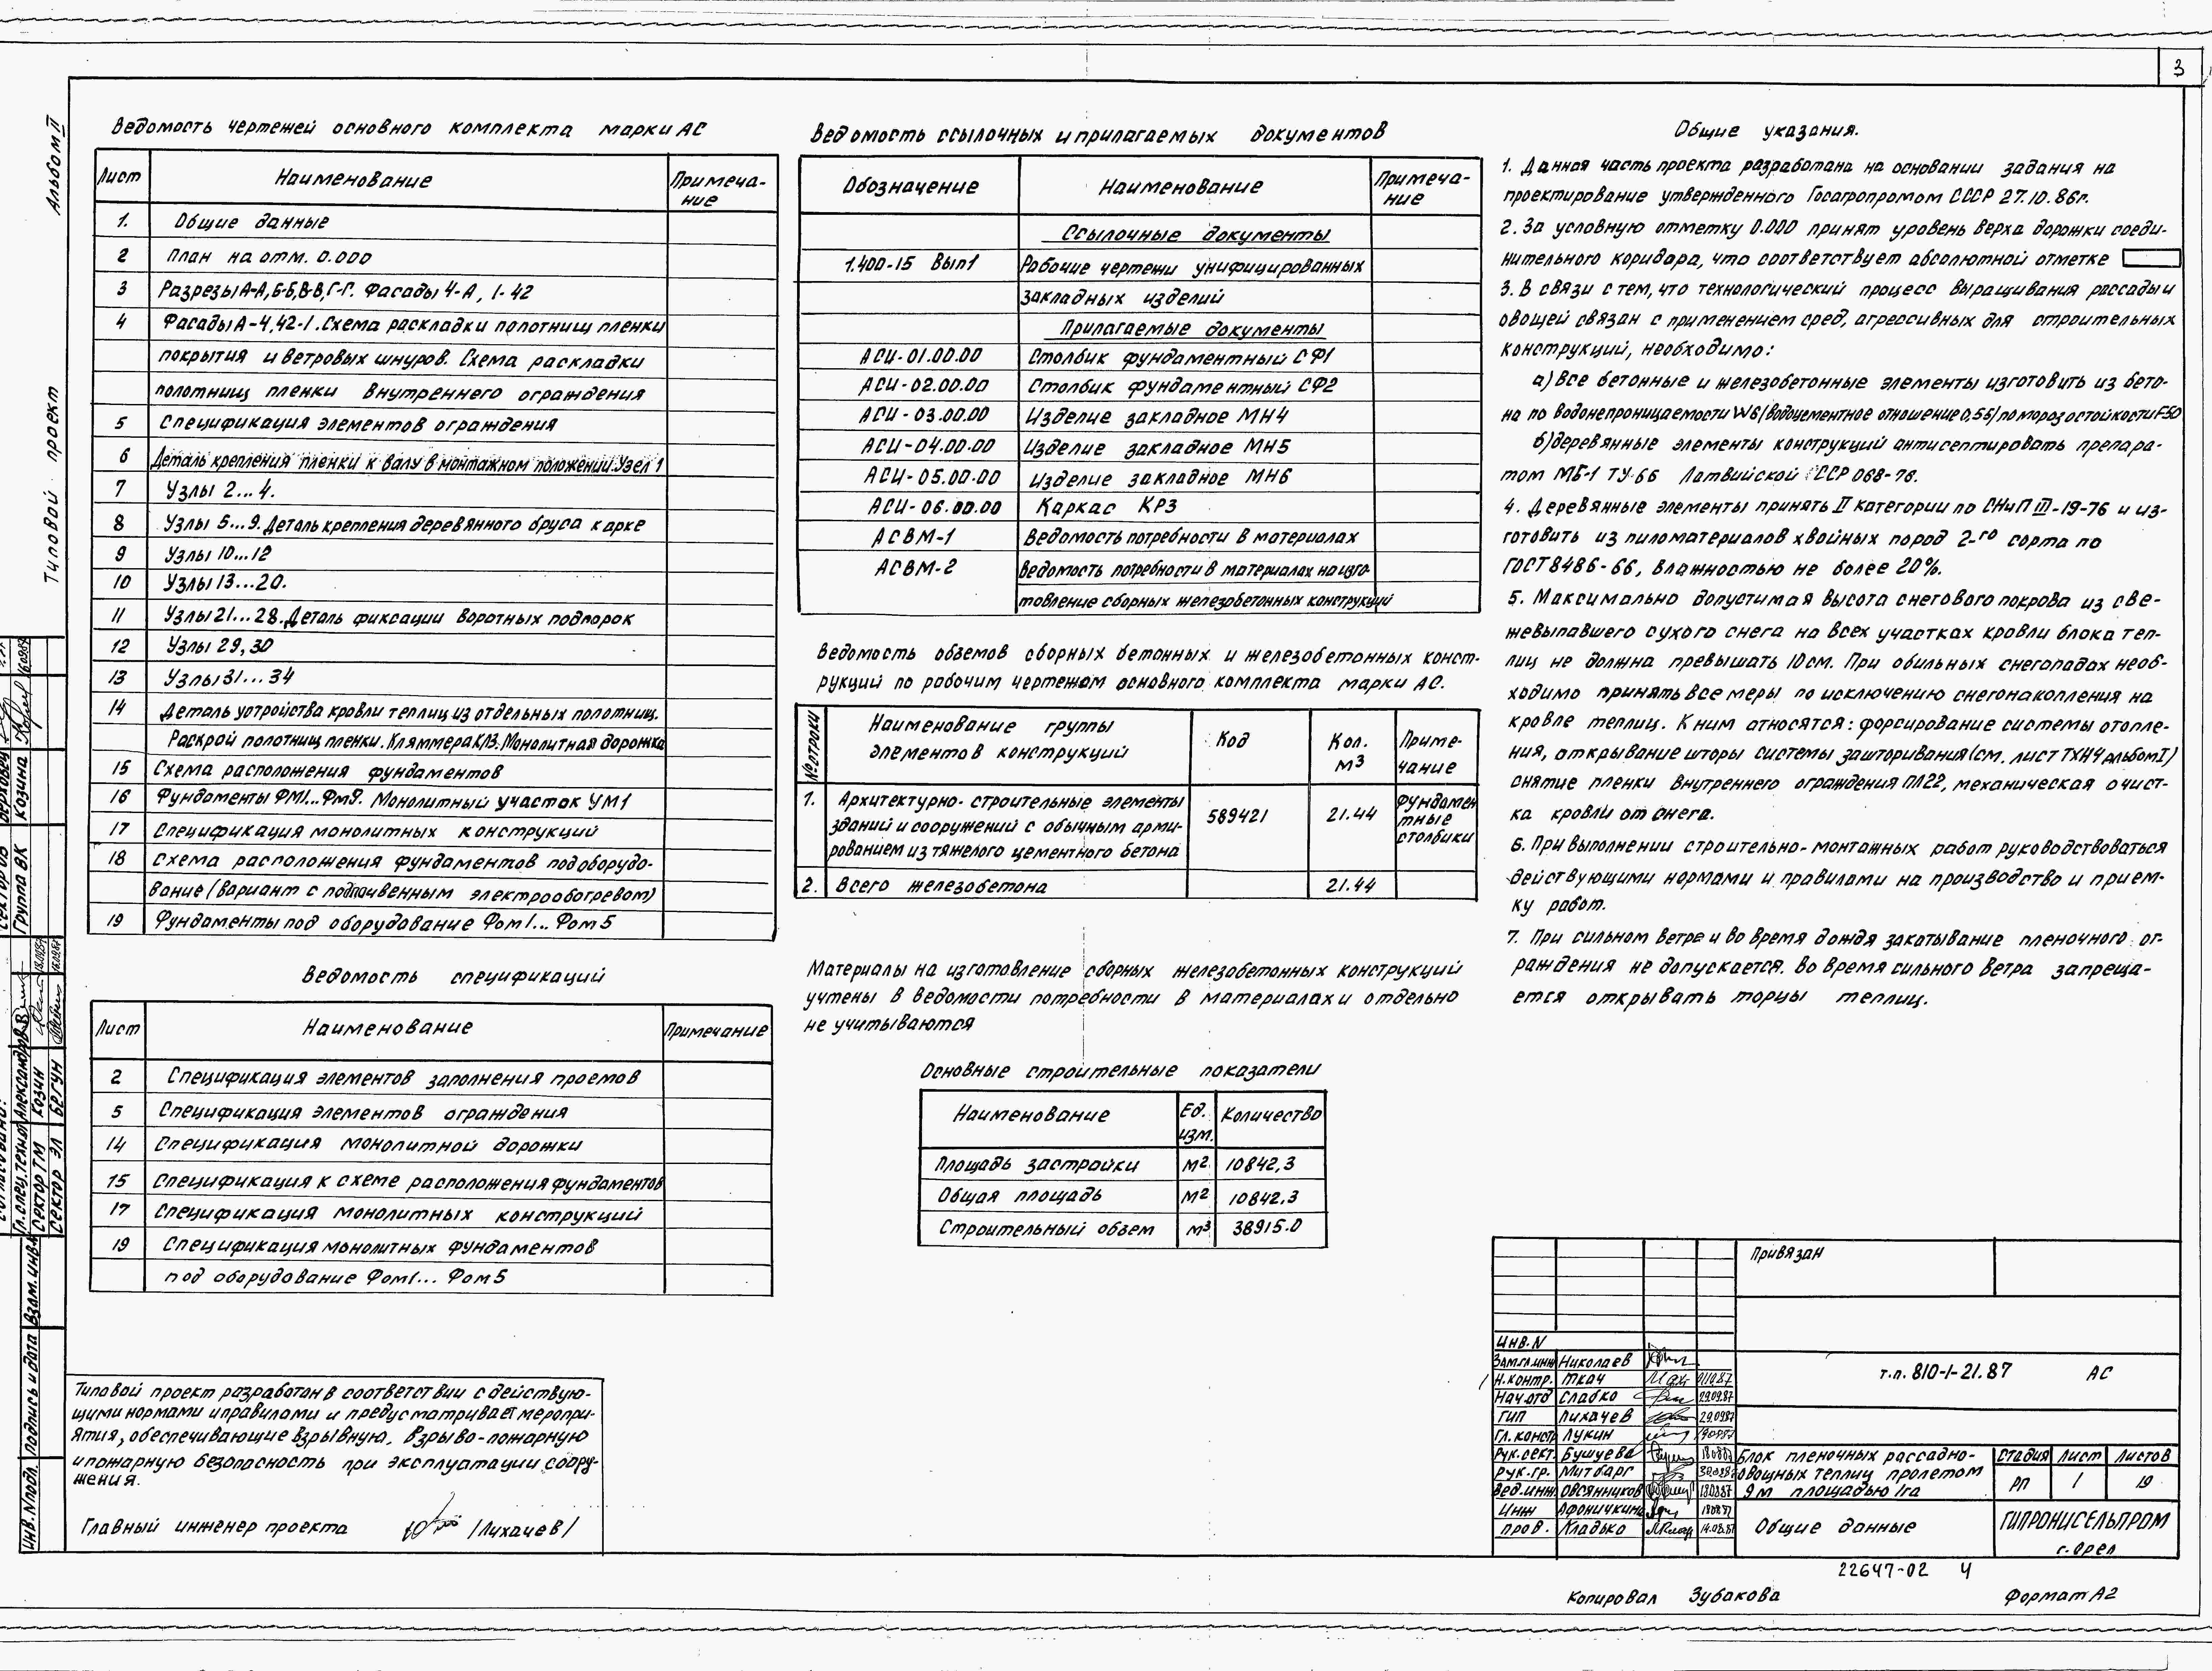 3
Альбом II
Типовой проект
Ведомость чертежей основного комплекта марки АС
Лист Наименование Примеча-
ние
1. Общие данные
2 План на отм. 0.000
3 Разрезы А-А, Б-Б, В-В, Г-Г. Фасады Ч-А, 1-42
4 Фасады А-Ч, 42-1. Схема раскладки полотнищ пленки
покрытия и ветровых шнуров. Схема раскладки
полотнищ пленки внутреннего ограждения
5 Спецификация элементов ограждения
6 Деталь крепления пленки к валу в монтажном положении. Узел 1
7 Узлы 2...4.
8 Узлы 5...9. Деталь крепления деревянного бруса к арке
9 Узлы 10...12
10 Узлы 13...20.
11 Узлы 21...28. Деталь фиксации воротных подпорок
12 Узлы 29, 30
13 Узлы 31...34
14 Деталь устройства кровли теплиц из отдельных полотнищ.
Раскрой полотнищ пленки. Кляммера КЛ3. Монолитная дорожка
15 Схема расположения фундаментов
16 Фундаменты ФМ1...ФМ9. Монолитный участок УМ1
17 Спецификация монолитных конструкций
18 Схема расположения фундаментов под оборудо-
вание (вариант с подпочвенным электрообогревом)
19 Фундаменты под оборудование Фом1... Фом5
Ведомость спецификаций
Лист Наименование Примечание
2 Спецификация элементов заполнения проемов
5 Спецификация элементов ограждения
14 Спецификация монолитной дорожки
15 Спецификация к схеме расположения фундаментов
17 Спецификация монолитных конструкций
19 Спецификация монолитных фундаментов
под оборудование Фом1... Фом5
Типовой проект разработан в соответствии с действую-
щими нормами и правилами и предусматривает меропри-
ятия, обеспечивающие взрывную, взрыво-пожарную
и пожарную безопасность при эксплуатации соору-
жения.
Главный инженер проекта /Лихачев/
Ведомость ссылочных и прилагаемых документов
Обозначение Наименование Примеча-
ние
Ссылочные документы
1.400-15 Вып1 Рабочие чертежи унифицированных
закладных изделий
Прилагаемые документы
АСИ-01.00.00 Столбик фундаментный СФ1
АСИ-02.00.00 Столбик фундаментный СФ2
АСИ-03.00.00 Изделие закладное МН4
АСИ-04.00.00 Изделие закладное МН5
АСИ-05.00.00 Изделие закладное МН6
АСИ-06.00.00 Каркас КР3
АСВМ-1 Ведомость потребности в материалах
АСВМ-2 Ведомость потребности в материалах на изго-
товление сборных железобетонных конструкций
Ведомость обземов сборных бетонных и железобетонных конст-
рукций по рабочим чертежам основного комплекта марки АС.
№ строки Наименование группы
элементов конструкций Код Кол.
м3 Приме-
чание
1. Архитектурно-строительные элементы
зданий и сооружений с обычным арми-
рованием из тяжелого цементного бетона 589421 21.44 Фундамен
тные
столбики
2. Всего железобетона 21.44
Материалы на изготовление сборных железобетонных конструкций
учтены в ведомости потребности в материалах и отдельно
не учитываются
Основные строительные показатели
Наименование Ед.
изм. Количество
Площадь застройки м2 10842,3
Общая площадь м2 10842.3
Строительный обзем м3 38915.0
Общие указания.
1. Данная часть проекта разработана на основании задания на
проектирование утвержденного Госагропромом СССР 27.10.86г.
2. За условную отметку 0.000 принят уровень верха дорожки соеди-
нительного коридора, что соответствует абсолютной отметке
3. В связи с тем, что технологический процесс выращивания рассады и
овощей связан с применением сред, агрессивных для строительных
конструкций, необходимо:
а) Все бетонные и железобетонные элементы изготовить из бето-
на по водонепроницаемости W6 (водоцементное отношение 0,55) по морозостойкости F50
б) деревянные элементы конструкций антисептировать препара-
том МБ-1 ТУ-66 Латвийской ССР 068-76.
4. Деревянные элементы принять II категории по СНиП III-19-76 и из-
готовить из пиломатериалов хвойных пород 2-го сорта по
ГОСТ 8486-66, влажностью не более 20%.
5. Максимально допустимая высота снегового покрова из све-
жевыпавшего сухого снега на всех участках кровли блока теп-
лиц не должна превышать 10см. При обильных снегопадах необ-
ходимо принять все меры по исключению снегонакопления на
кровле теплиц. К ним относятся: форсирование системы отопле-
ния, открывание шторы системы зашторивания (см. лист ТХН4 альбом I)
снятие пленки внутреннего ограждения ПЛ22, механическая очист-
ка кровли от снега.
6. При выполнении строительно-монтажных работ руководствоваться
действующими нормами и правилами на производство и прием-
ку работ.
7. При сильном ветре и во время дождя закатывание пленочного ог-
раждения не допускается. Во время сильного ветра запреща-
ется открывать торцы теплиц.
Привязан
Инв. N
Зам.гл.инж Николаев
Н.контр. Ткач
Нач отд Сладко 29.09.87
ГИП Лихачев 29.09.87
Гл. констр Лукин
Рук.сект. Бушуева
Рук.гр. Митбарг
Вед.инж Овсянников 18.08.87
Инж Афоничкина 18.08.87
Пров. Кладько 14.08.87
т.п. 810-1-21.87 АС
Блок пленочных рассадно-
овощных теплиц пролетом
9м площадью 1га
Стадия Лист Листов
РП 1 19
Общие данные
ГИПРОНИСЕЛЬПРОМ
г. Орел
22647-02 4
Копировал Зубакова Формат А2
Группа ВК Козина
Гл.спец.технол Александров
Сектор ТМ Козин
Сектор ЭЛ Бергун
Взам. инв.
Подпись и дата
Инв. N подл.